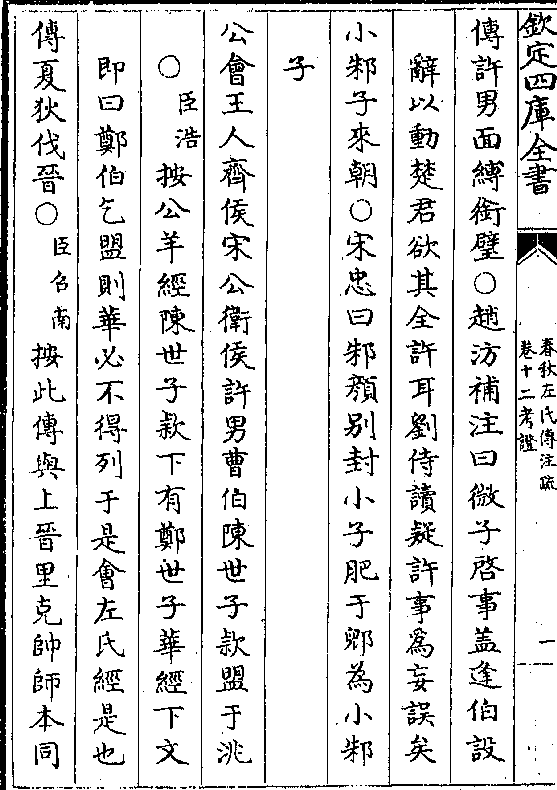 欽定四庫全書
春秋左氏傳注疏
卷十二考證
一
傳許男面縛銜璧○趙汸補注曰微子啓事蓋逢伯設
辭以動楚君欲其全許耳劉侍讀疑許事為妄誤矣
小邾子來朝○宋忠曰邾顔别封小子肥于郳為小邾
子
公會王人齊侯宋公衛侯許男曹伯陳世子款盟于洮
○臣浩按公羊經陳世子款下有鄭世子華經下文
即曰鄭伯乞盟則華必不得列于是會左氏經是也
傳夏狄伐晉○臣召南按此傳與上晉里克帥師本同